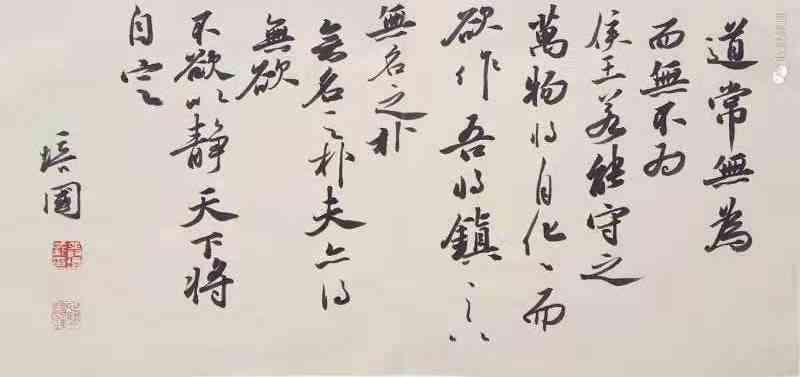 道常無為
而無不為
侯王若能守之
萬物將自化〻而
欲作吾將鎮〻之以
無名之朴
無名之朴夫亦將
無欲
不欲以静天下將
自定
培國